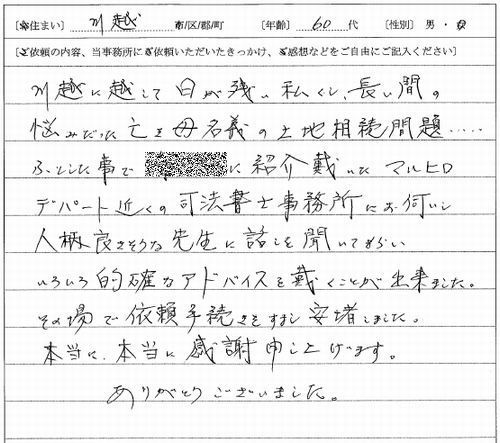 【お住まい】 川越 市/区/郡/町 【年齢】 60 代 【性別】 男・女
【ご依頼の内容、当事務所にご依頼いただいたきっかけ、ご感想などをご自由にご記入ください】
川越に越して日が浅い私くし、長い間の
悩みだった亡き母名義の土地相続問題.....
ふとした事で に紹介戴いた マルヒロ
デパート近くの司法書士事務所にお伺いし
人柄良さそうな先生に話しを聞いてもらい
いろいろ的確なアドバイスを戴くことが出来ました。
その場で依頼手続きをすまし安堵しました。
本当に、本当に感謝申し上げます。
ありがとうございました。